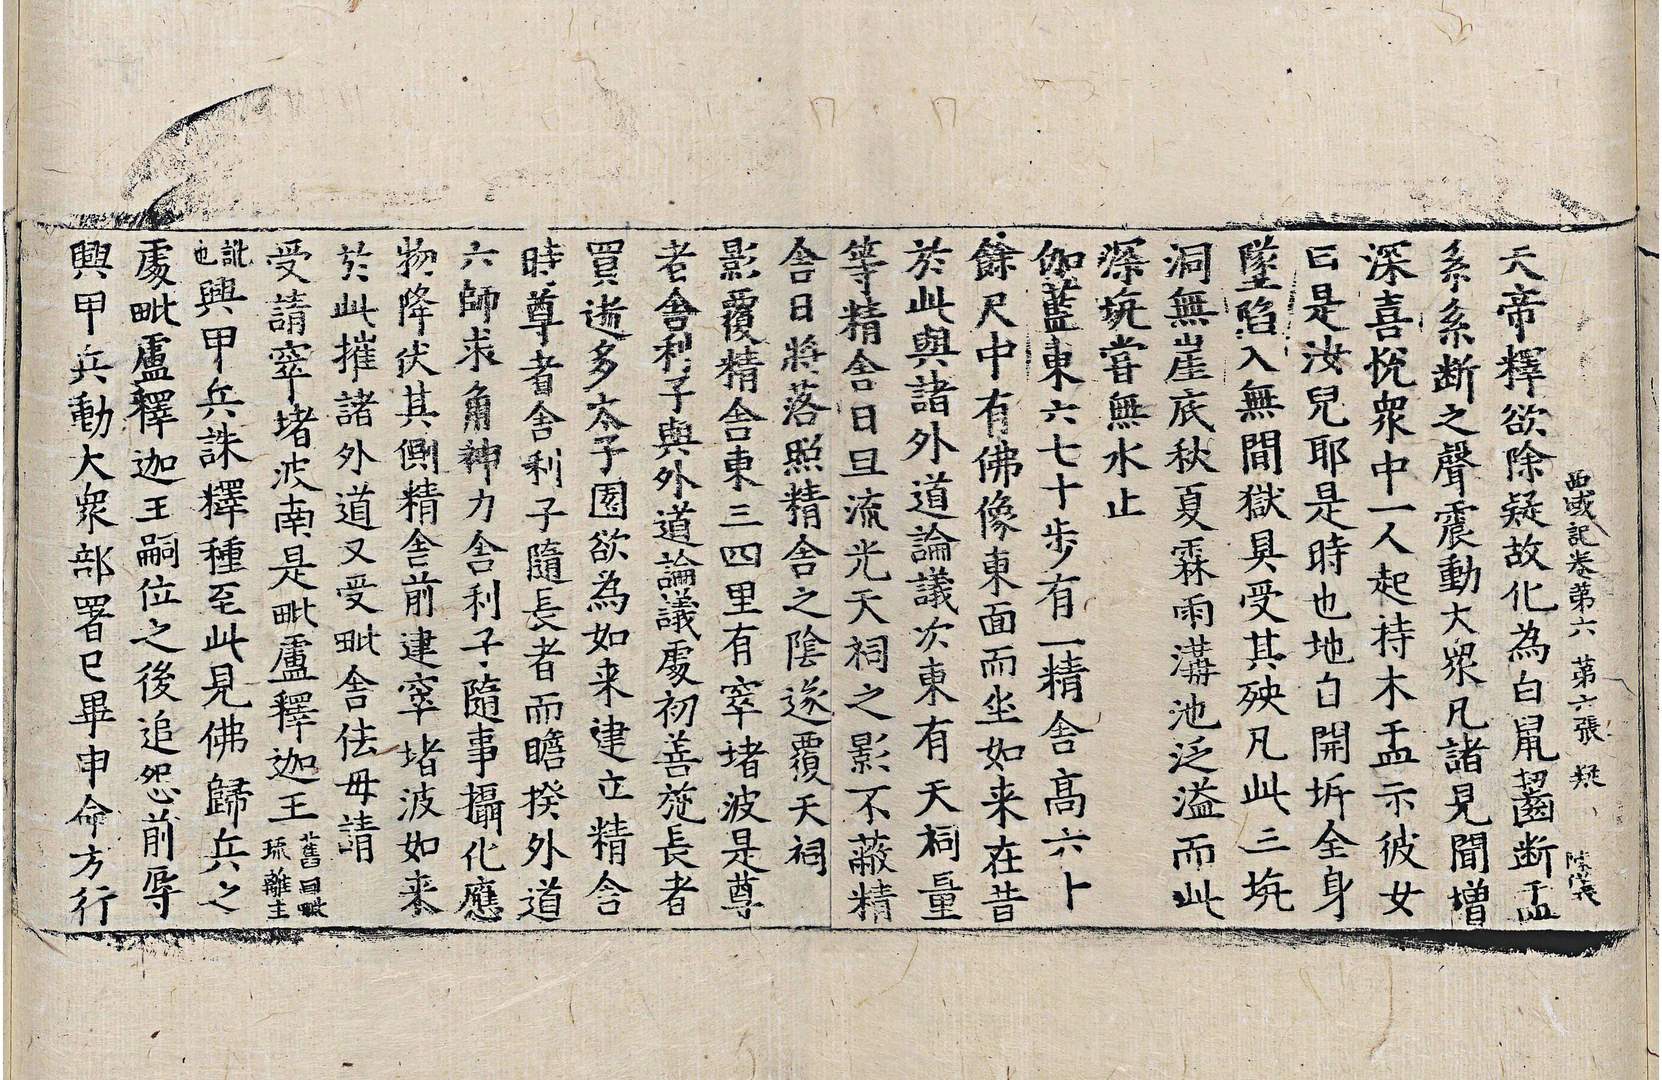 西域記卷第六 第六張 疑 陳儀
天帝釋欲除疑故化為白鼠齧斷盂
系系斷之聲震動大衆凡諸見聞增
深喜悅衆中一人起持木盂示彼女
曰是汝兒耶是時也地自開坼全身
墜陷入無間獄具受其殃凡此三坑
洞無崖底秋夏霖雨溝池泛溢而此
深坑嘗無水止
伽藍東六七十步有一精舍高六十
餘尺中有佛像東面而坐如来在昔
於此與諸外道論議次東有天祠量
等精舍日旦流光天祠之影不蔽精
舍日將落照精舍之陰遂覆天祠
影覆精舍東三四里有窣堵波是尊
者舍利子與外道論議處初善施長者
買逝多太子園欲為如来建立精舍
時尊者舍利子隨長者而瞻揆外道
六師求角神力舍利子隨事攝化應
物降伏其側精舍前建窣堵波如来
於此摧諸外道又受毗舍佉母請
受請窣堵波南是毗盧釋迦王舊曰毗琉離王
訛也興甲兵誅釋種至此見佛歸兵之
處毗盧釋迦王嗣位之後追怨前辱
興甲兵動大衆部署已畢申命方行